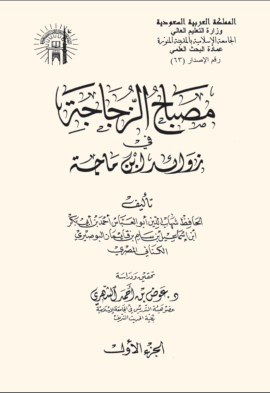 المملكة العربية السعودية
وزارة التعليم العالي
الجامعة الإسلامية بالمدينة المنورة
عمادة البحث العلمي
رقم الإصدار (٦٣)
مصباح الزجاجة
في
زوائد ابن ماجة
تأليف
الحافظ شهاب الدين أبو العباس أحمد بن أبي بكر
ابن إسماعيل بن سليم بن قايماز البوصيري
الكناني المصري
تحقيق ودراسة
د. عوض بن أحمد الشهري
عضو هيئة التدريس في الجامعة الإسلامية
كلية الحديث الشريف
الجزء الأول